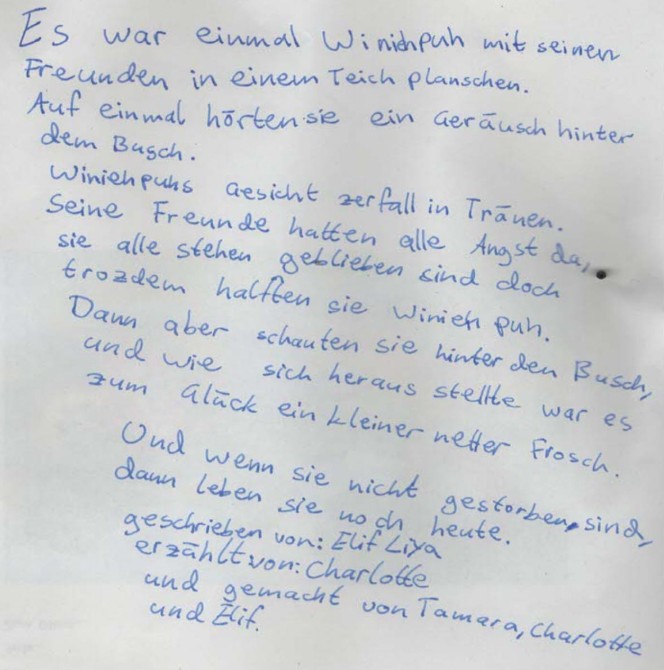 Es war einmal Winiehpuh mit seinen
Freunden in einem Teich planschen.
Auf einmal hörten sie ein Geräusch hinter
dem Busch.
Winiehpuhs Gesicht zerfall in Tränen.
Seine Freunde hatten alle Angst da,
sie alle stehen geblieben sind doch
trozdem halften sie Winieh puh.
Dann aber schauten sie hinter den Busch,
und wie sich heraus stellte war es
zum Glück ein kleiner netter Frosch.
Und wenn sie nicht gestorben sind,
dann leben sie noch heute.
geschrieben von: Elif Liya
erzählt von: Charlotte
und gemacht von Tamara, Charlotte
und Elif.